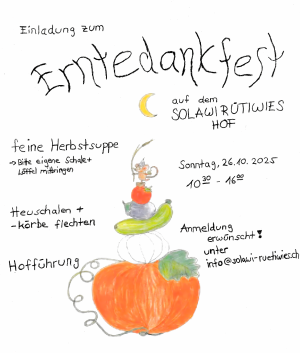 Einladung zum
Erntedankfest
auf dem
SOLAWI RÜTIWIES
HOF
feine Herbstsuppe
→ Bitte eigene Schale +
Löffel mitbringen
Sonntag, 26.10.2025
10³⁰ - 16⁰⁰
Heuschalen +
-körbe flechten
Anmeldung
erwünscht!
unter
info@solawi-ruetiwies.ch
Hofführung